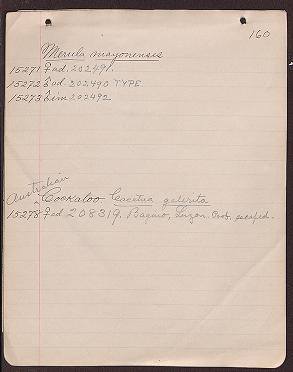 160
Merula mayonensis
15271 Fad. 202491.
15272 Fad. 202490 TYPE.
15273 Fim 202492
Australian
Cockatoo Cacatua galerita
15278 Fad 208319. Baguio, Luzon. Prob. escaped.